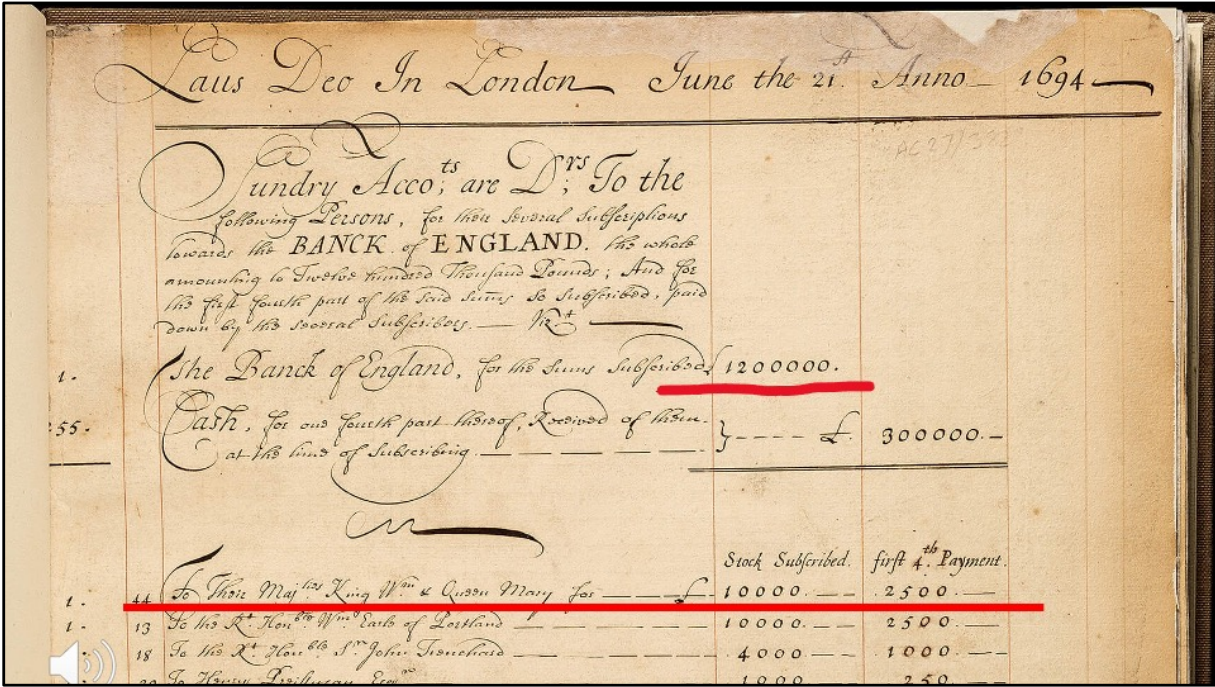 Laus Deo In London June the 21st Anno 1694
AC 27/382
Sundry Accots; are Drs; To the
following Persons, for their several Subscriptions
towards the BANCK of ENGLAND. the whole
amounting to Twelve hundred Thousand Pounds; And for
the first fourth part of the said sums so subscribed, paid
down by the several Subscribers. Vizt
1. The Banck of England, for the sums Subscribed £ 1200000.
55. Cash, for one fourth part thereof, Received of them
at the time of Subscribing } £. 300000.
Stock Subscribed. first 4th. Payment.
1. 44 To Their Majties King Wm & Queen Mary for £ 10000. 2500.
1. 13 To the Rt. Honble Wm Earle of Portland 10000. 2500.
18 To the Rt. Honble Sr. John Trenchard 4000. 1000.
To Henry Esqr 1000. 250.